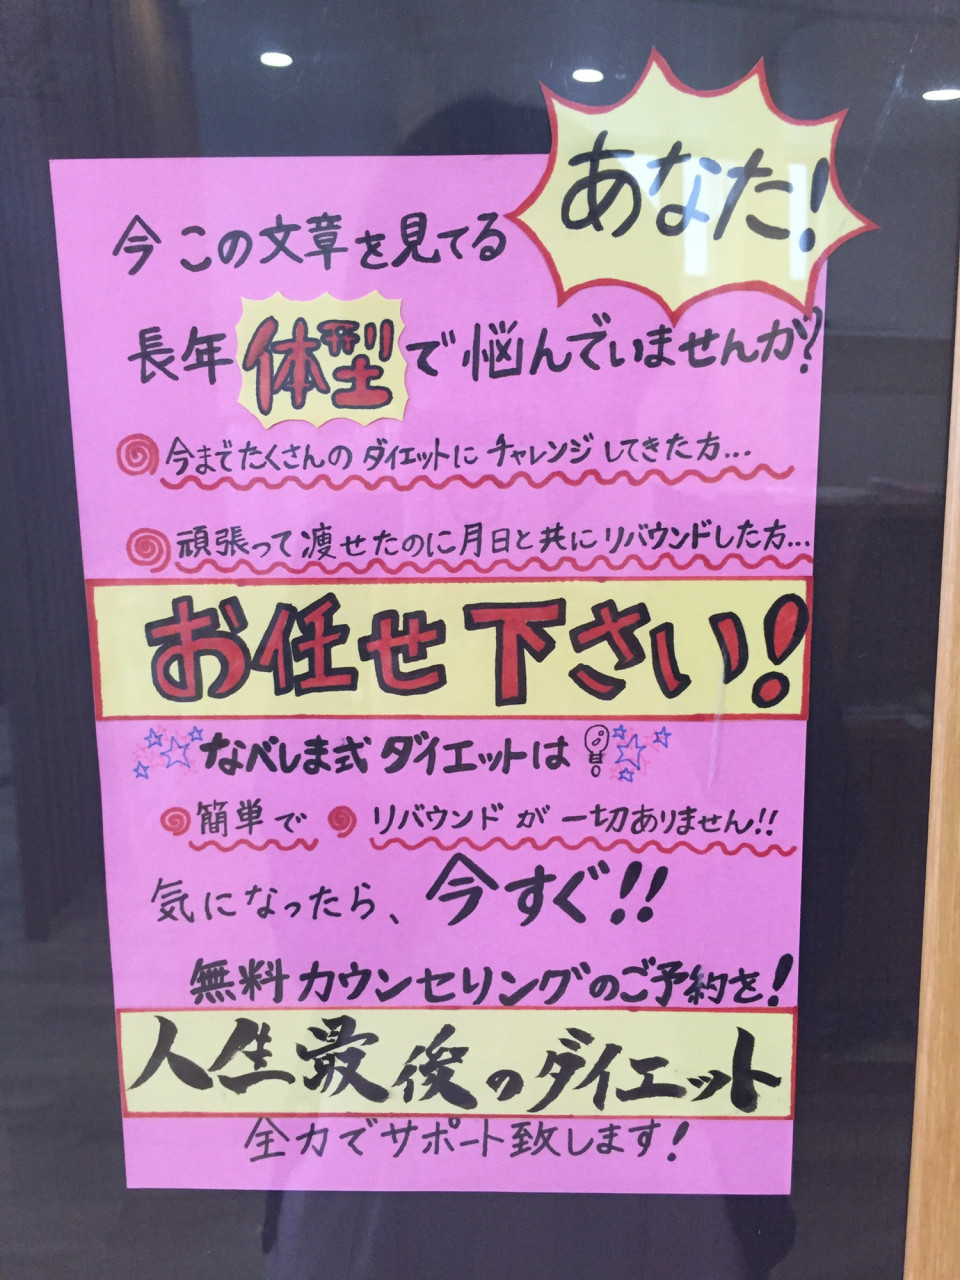 今この文章を見てるあなた!
長年体型で悩んでいませんか?
今までたくさんのダイエットにチャレンジしてきた方...
頑張って痩せたのに月日と共にリバウンドした方...
お任せ下さい!
なべしま式ダイエットは
簡単で リバウンドが一切ありません!!
気になったら、今すぐ!!
無料カウンセリングのご予約を!
人生最後のダイエット
全力でサポート致します!